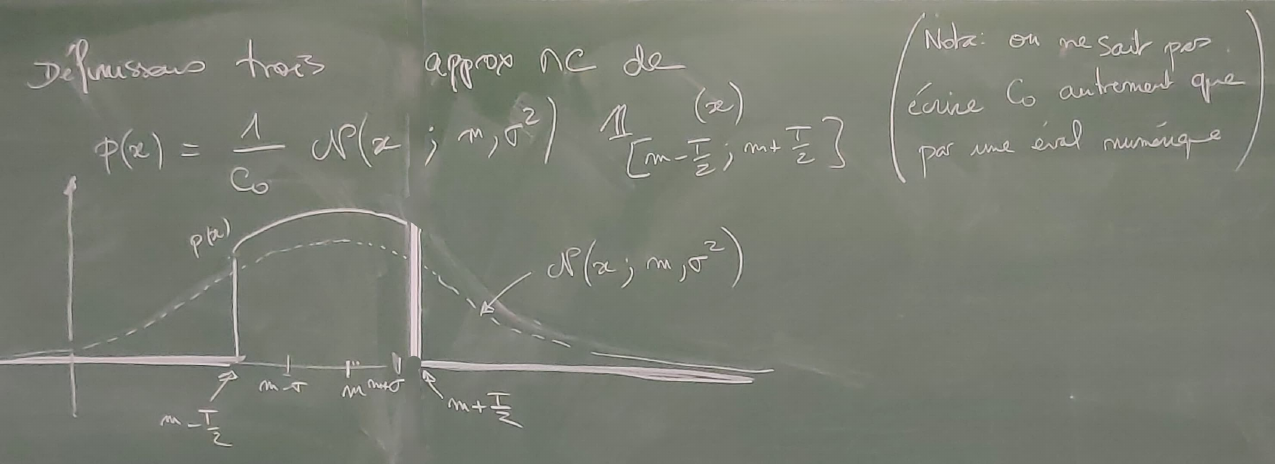 Définissons trois approx MC de
p(x) = 1/C₀ N(x ; m, σ²) 𝟙[m-T/2 ; m+T/2] (x)
(Nota: on ne sait pas
écrire C₀ autrement que
par une éval numérique)
p(x)
N(x ; m, σ²)
m-σ m m+σ
m-T/2
m+T/2